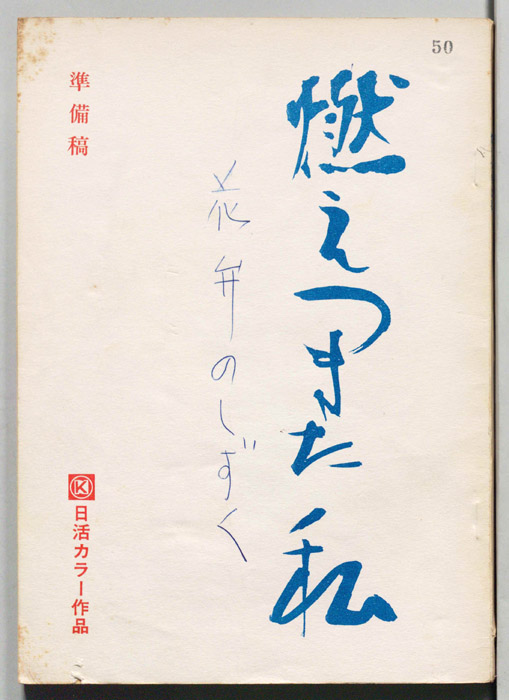 50
燃えつきた私
花弁のしずく
準備稿
K
日活カラー作品